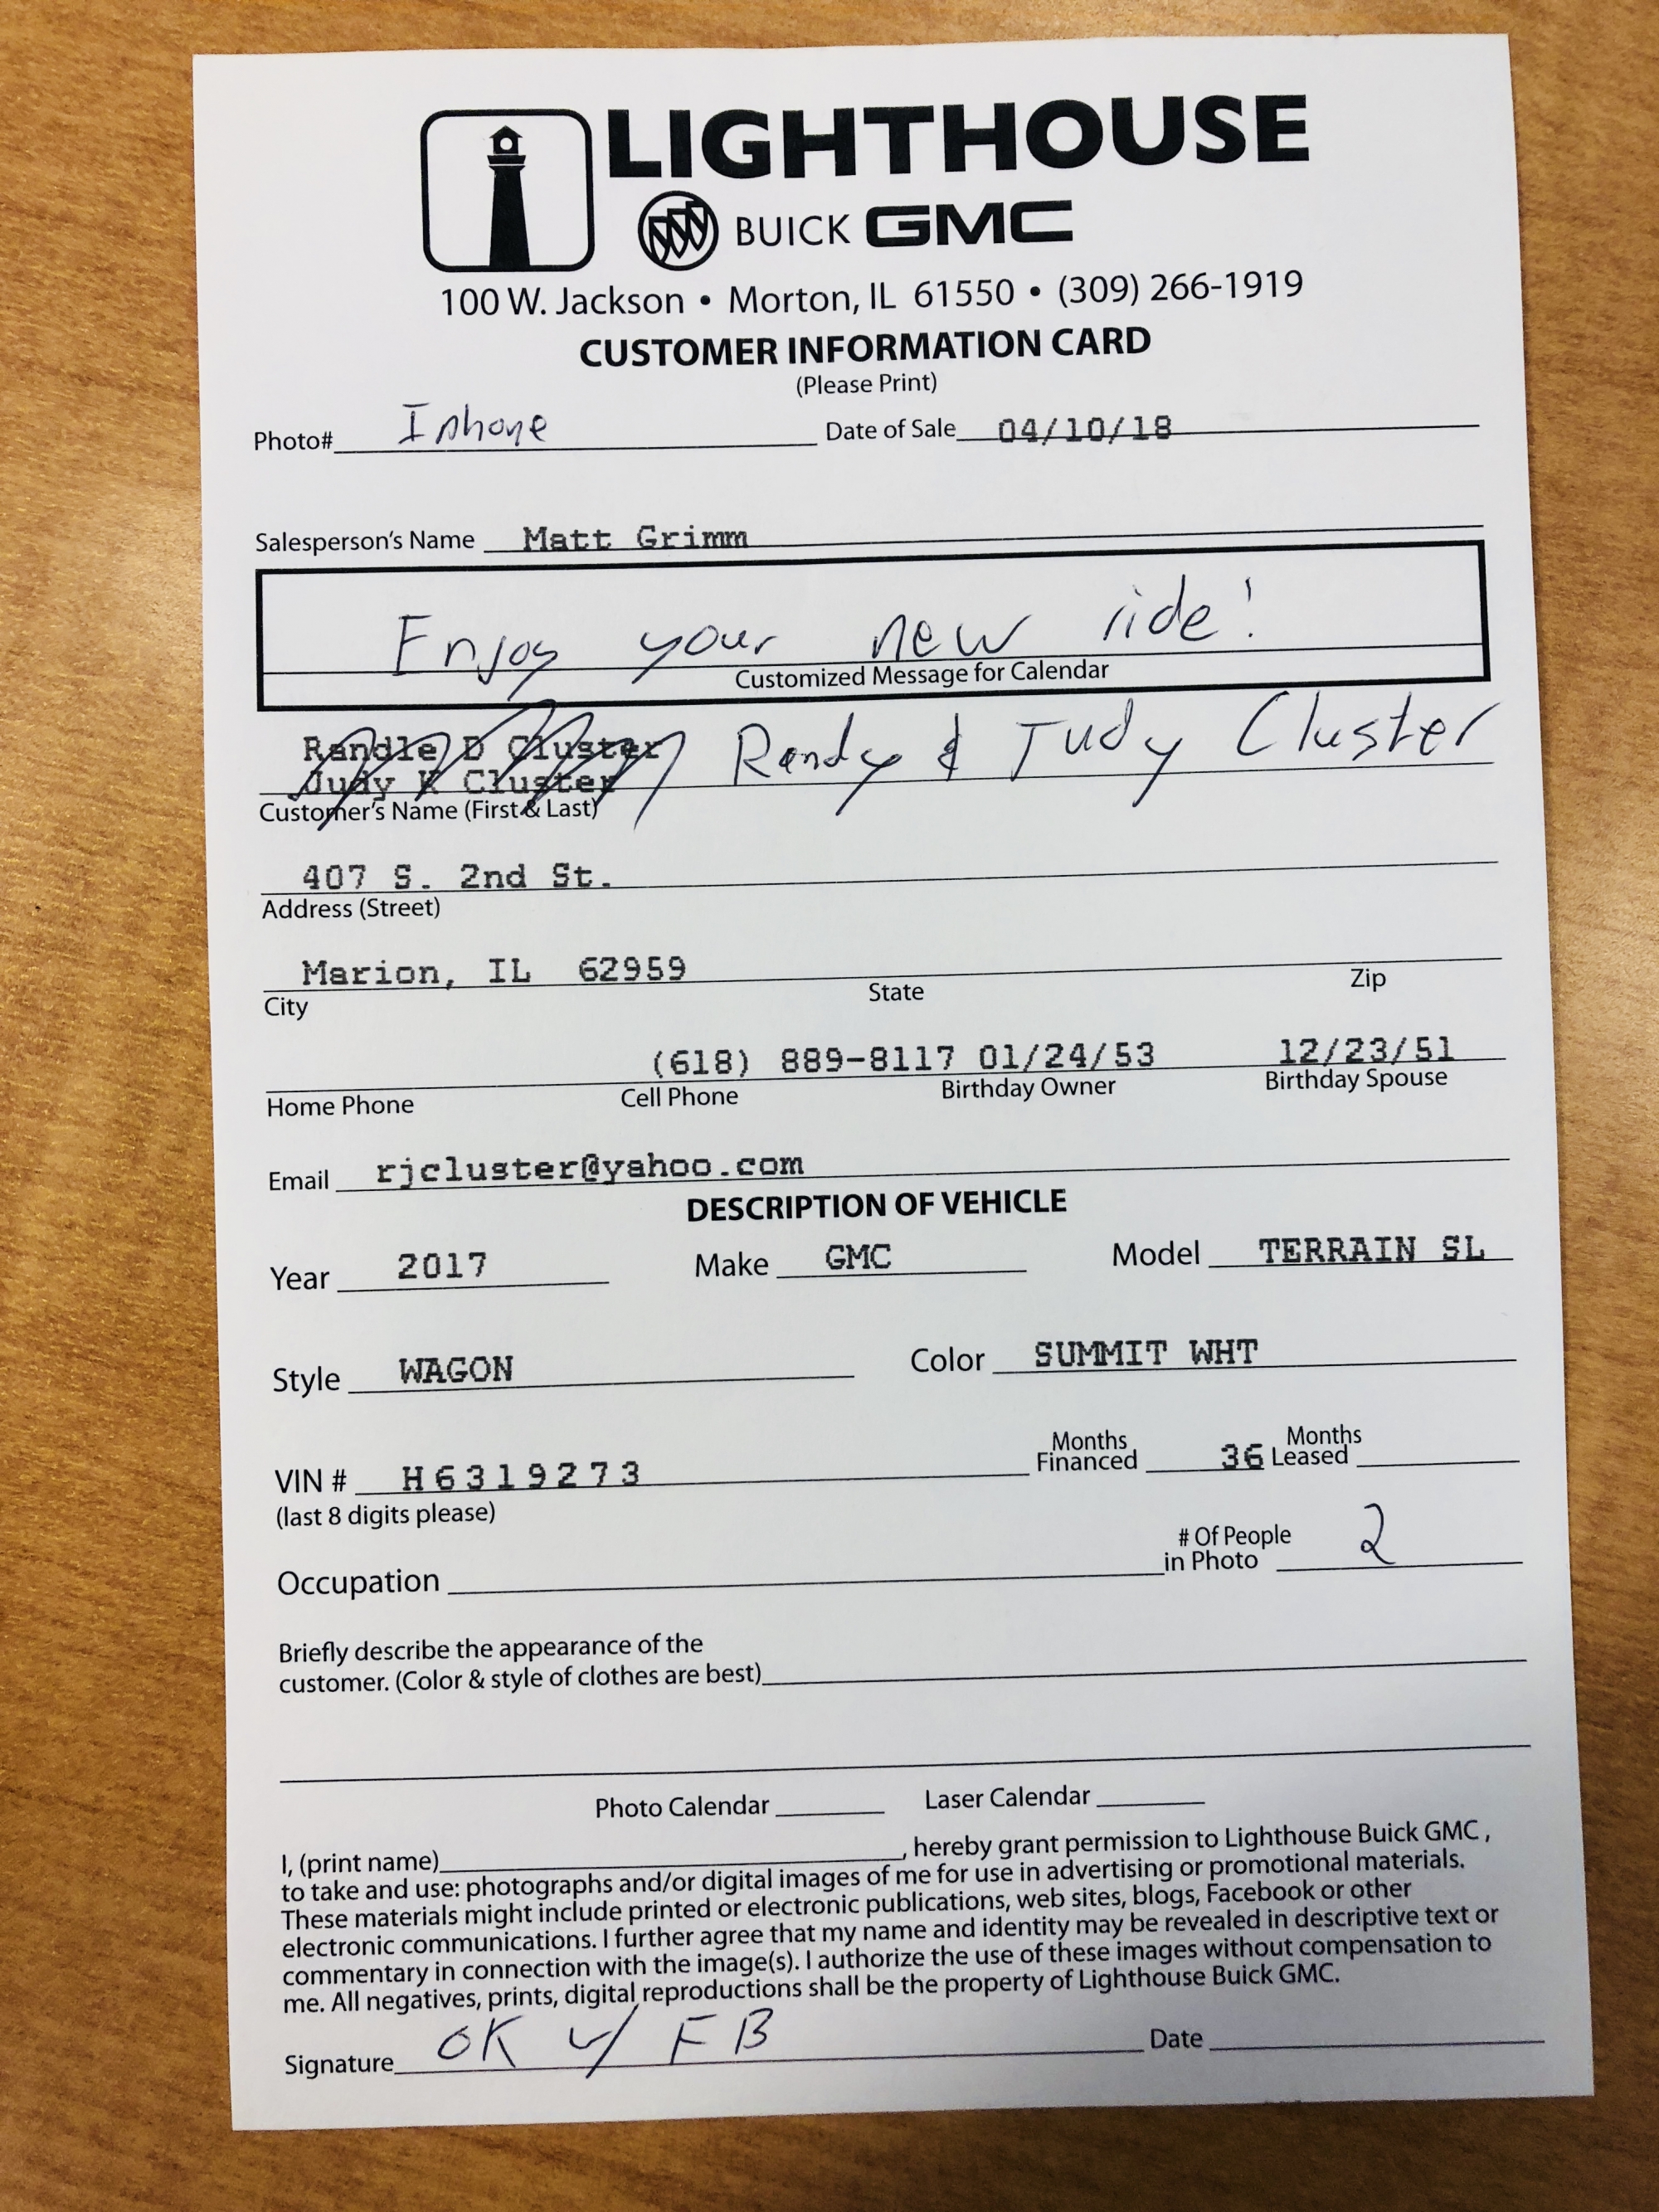 LIGHTHOUSE
BUICK GMC
100 W. Jackson • Morton, IL 61550 • (309) 266-1919
CUSTOMER INFORMATION CARD
(Please Print)
Photo# Iphone Date of Sale 04/10/18
Salesperson's Name Matt Grimm
Enjoy your new ride!
Customized Message for Calendar
Randle D Cluster
Judy K Cluster Randy & Judy Cluster
Customer's Name (First & Last)
407 S. 2nd St.
Address (Street)
Marion, IL 62959
City State Zip
(618) 889-8117 01/24/53 12/23/51
Home Phone Cell Phone Birthday Owner Birthday Spouse
Email rjcluster@yahoo.com
DESCRIPTION OF VEHICLE
Year 2017 Make GMC Model TERRAIN SL
Style WAGON Color SUMMIT WHT
VIN # H6319273 Months Financed 36 Months Leased
(last 8 digits please)
Occupation # Of People in Photo 2
Briefly describe the appearance of the
customer. (Color & style of clothes are best)
Photo Calendar Laser Calendar
I, (print name) , hereby grant permission to Lighthouse Buick GMC ,
to take and use: photographs and/or digital images of me for use in advertising or promotional materials.
These materials might include printed or electronic publications, web sites, blogs, Facebook or other
electronic communications. I further agree that my name and identity may be revealed in descriptive text or
commentary in connection with the image(s). I authorize the use of these images without compensation to
me. All negatives, prints, digital reproductions shall be the property of Lighthouse Buick GMC.
Signature OK w/ FB Date